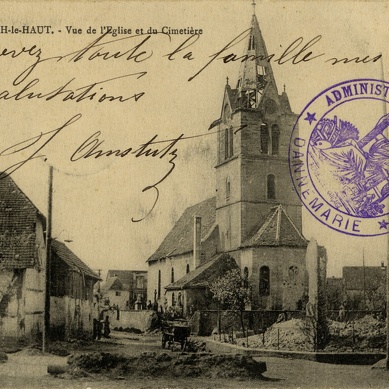 H-le-HAUT. - Vue de l'Eglise et du Cimetière
evez toute la famille mes
alutations
J. Amstutz
ADMINIST
DANNEMARIE